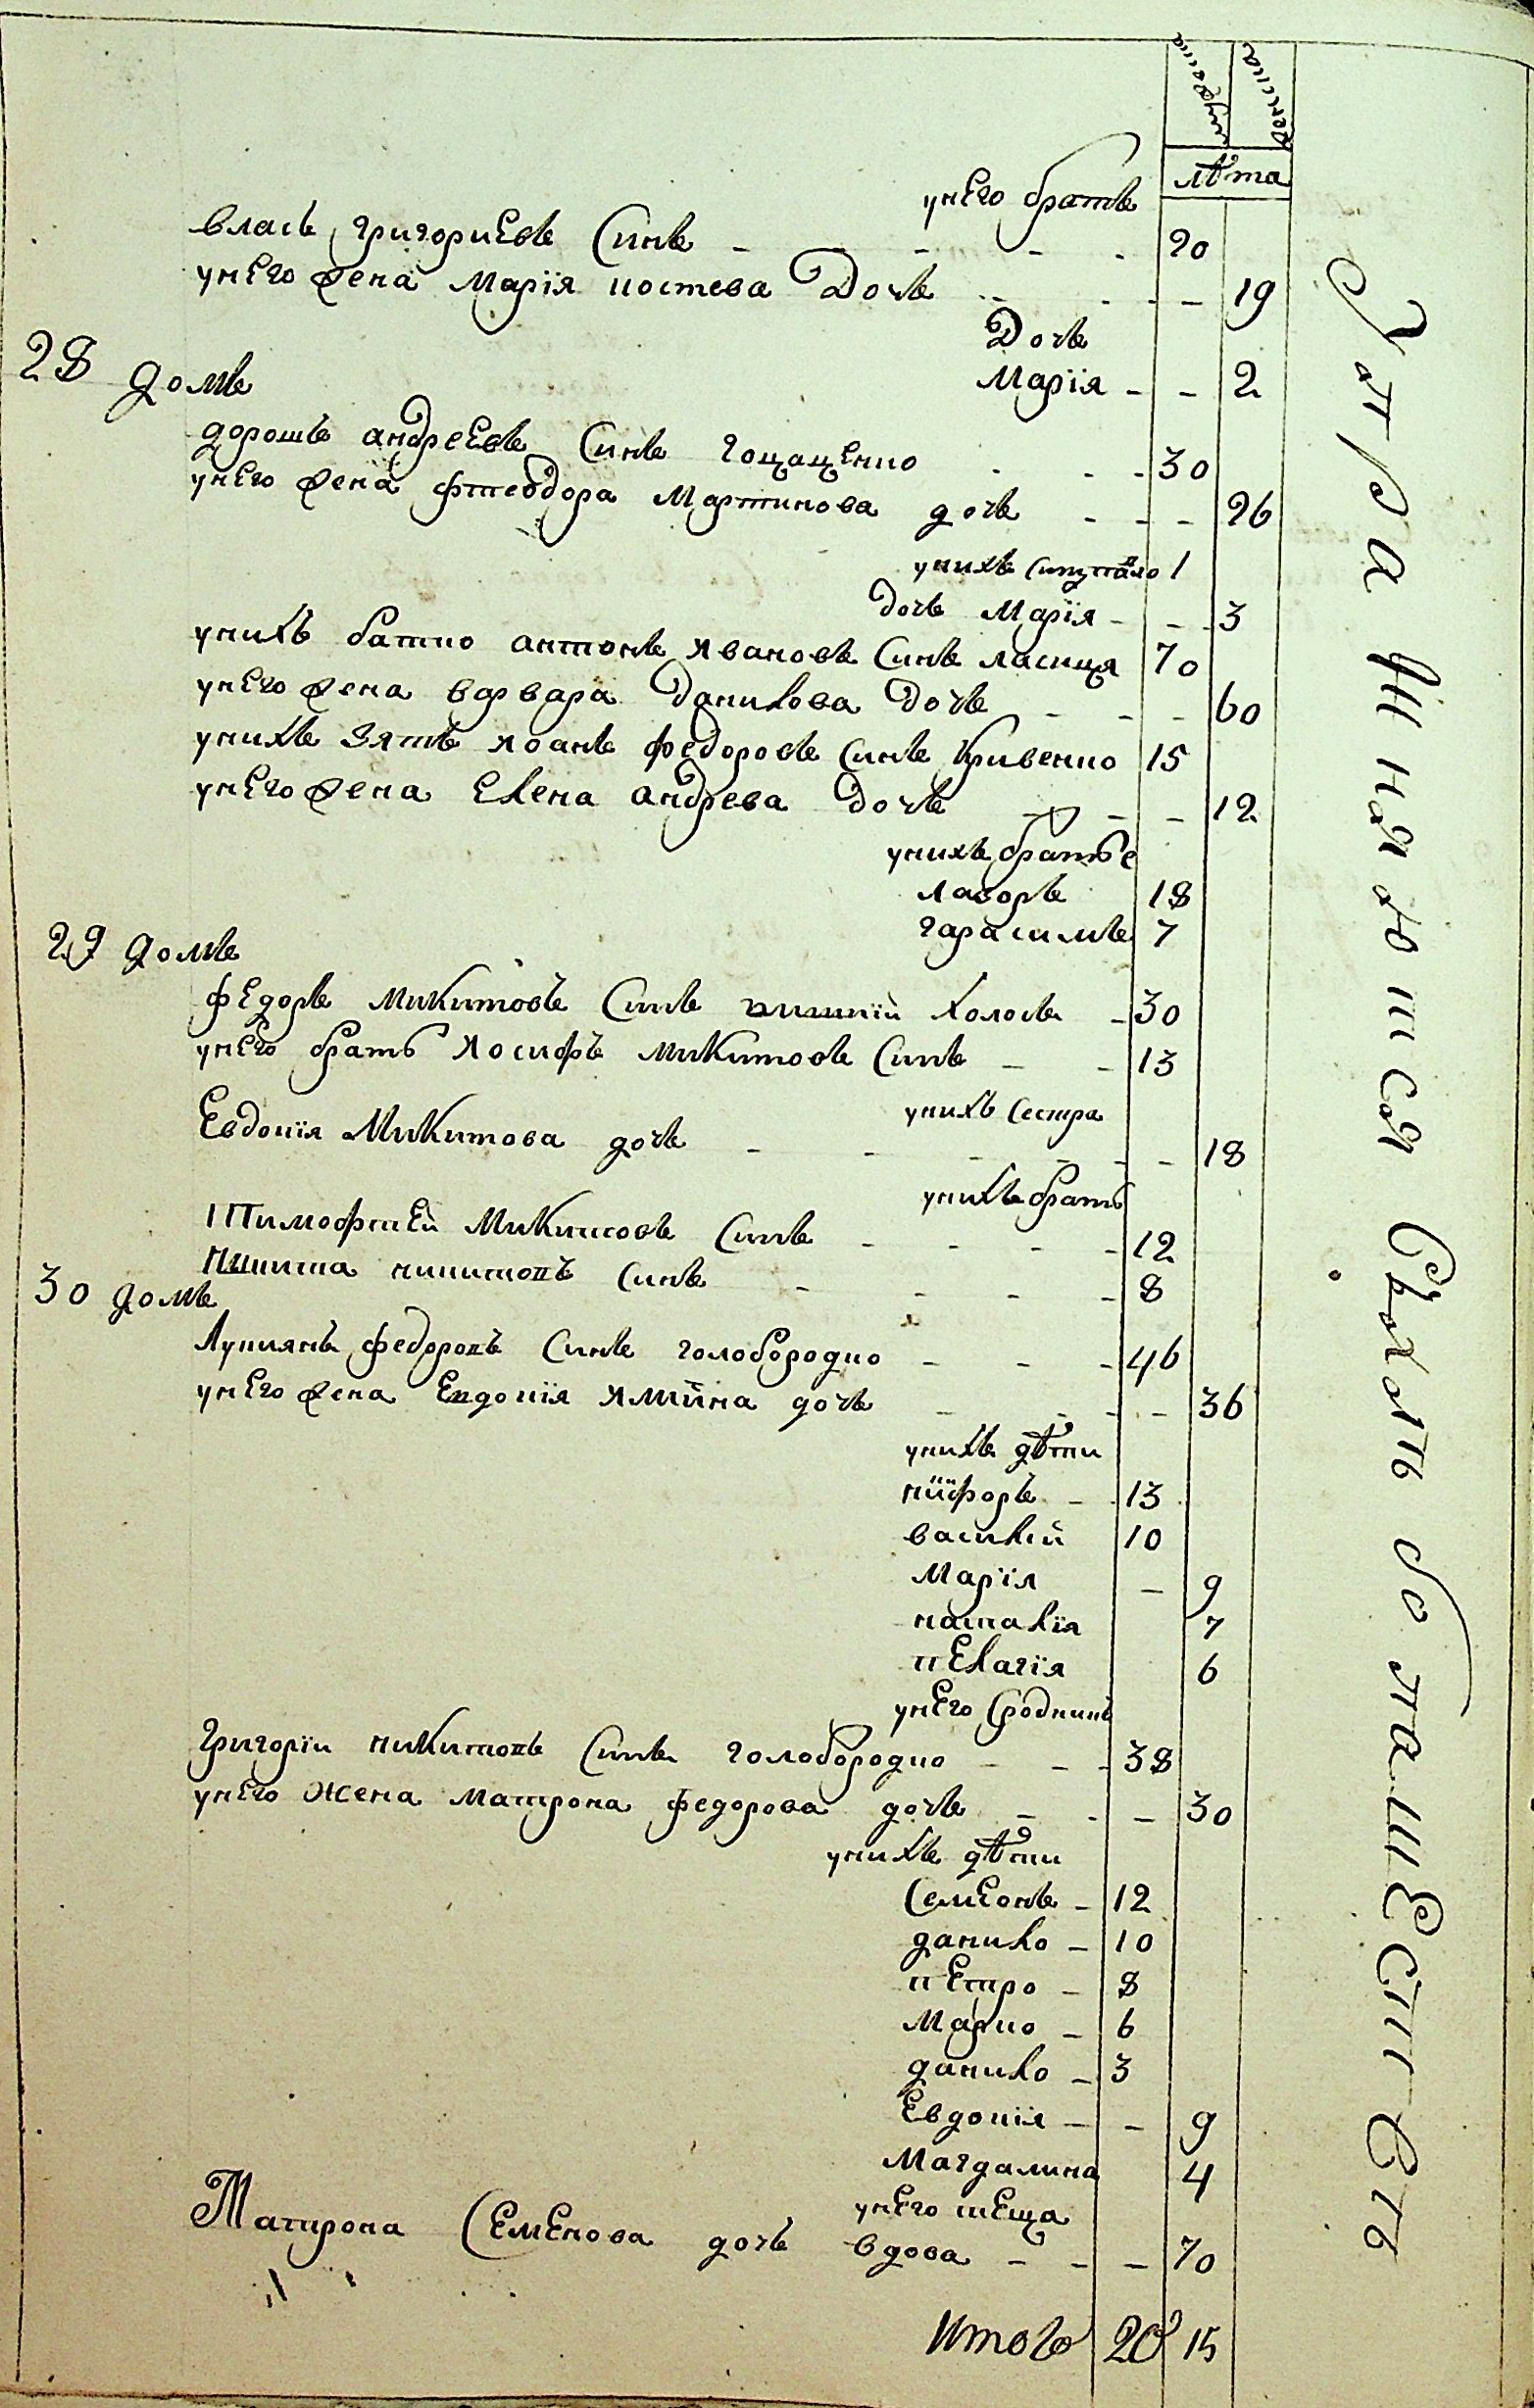 мужеска женска
лѣта
унего братъ
власъ григориевъ синъ - - - - 20
унего жена марїя костева дочъ - - - - 19
дочъ
марїя - - 2
28 домъ
дорошъ андреевъ синъ гощаценко - - - 30
унего жена фтеодора мартинова дочъ - - - 26
унихъ синъ павло 1
дочъ марїя - - - 3
унихъ батко антонъ явановъ синъ ласиця 70
унего жена варвара данилова дочъ - - - 60
унихъ зять яоанъ федоровъ синъ кривенко 15
унего жена елена андрева дочъ - - - 12
унихъ братье
лаворъ 18
гарасимъ 7
29 домъ
федоръ микитовъ синъ холосъ - 30
унего братъ яосифъ микитовъ синъ - - 13
унихъ сестра
евдокїя микитова дочъ - - - - - 18
унихъ братъ
тимофтей микитовъ синъ - - - - 12
микита микитовъ синъ - - - - 8
30 домъ
лукиянъ федоровъ синъ голобородко - - - 46
унего жена евдокїя якимїна дочъ - - - - 36
унихъ дѣти
никїфоръ - 13
василий 10
марїя - 9
наталїя 7
пелагїя 6
унего сродникъ
григорїи никитовъ синъ голобородко - - - 38
унего жена матрона федорова дочъ - - - 30
унихъ дѣти
семеонъ - 12
данило - 10
петро - 8
марко - 6
данило - 3
евдокїя - - 9
магдалина 4
унего теща
матрона семенова дочъ вдова - - - 70
итого 20 15